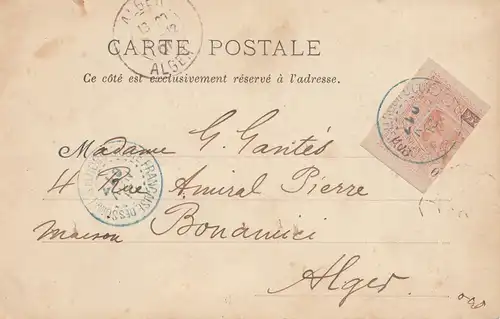 ALGER
ALGER
CARTE POSTALE
Ce côté est exclusivement réservé à l'adresse.
Madame G. Gantés
4 Rue Amiral Pierre
maison Bonamici
Alger.